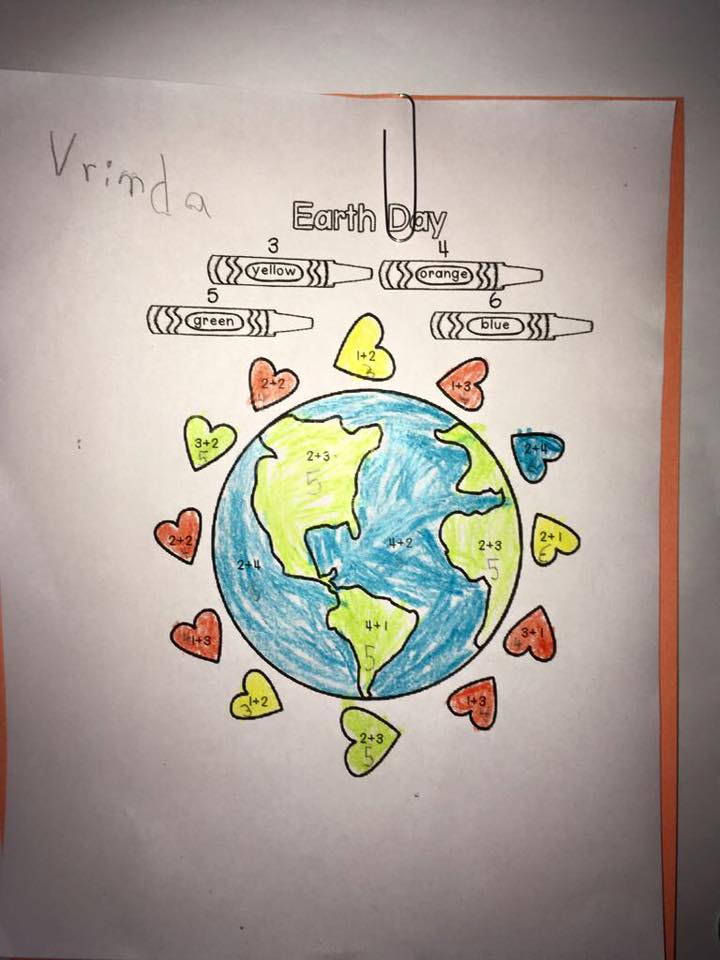 Vrinda
Earth Day
3 4
yellow orange
5 6
green blue
1+2
3
2+2
1+3
3+2
5
2+4
2+3
5
2+2
4+2
2+3
5
2+1
2+4
4+1
5
4 1+3
3+1
4
1+2
3
1+3
4
2+3
5